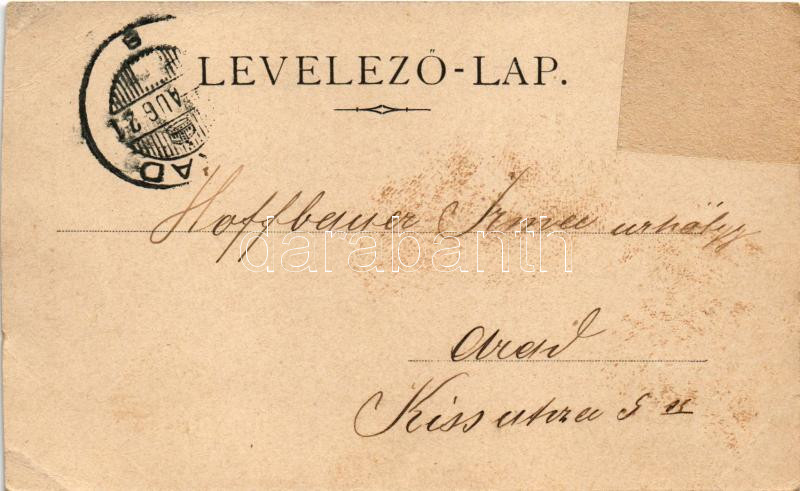 LEVELEZŐ-LAP.
S
AUG 21
AD
Hoffbauer Irma urhölgy
darabanth
Arad
Kiss utza 5 sz